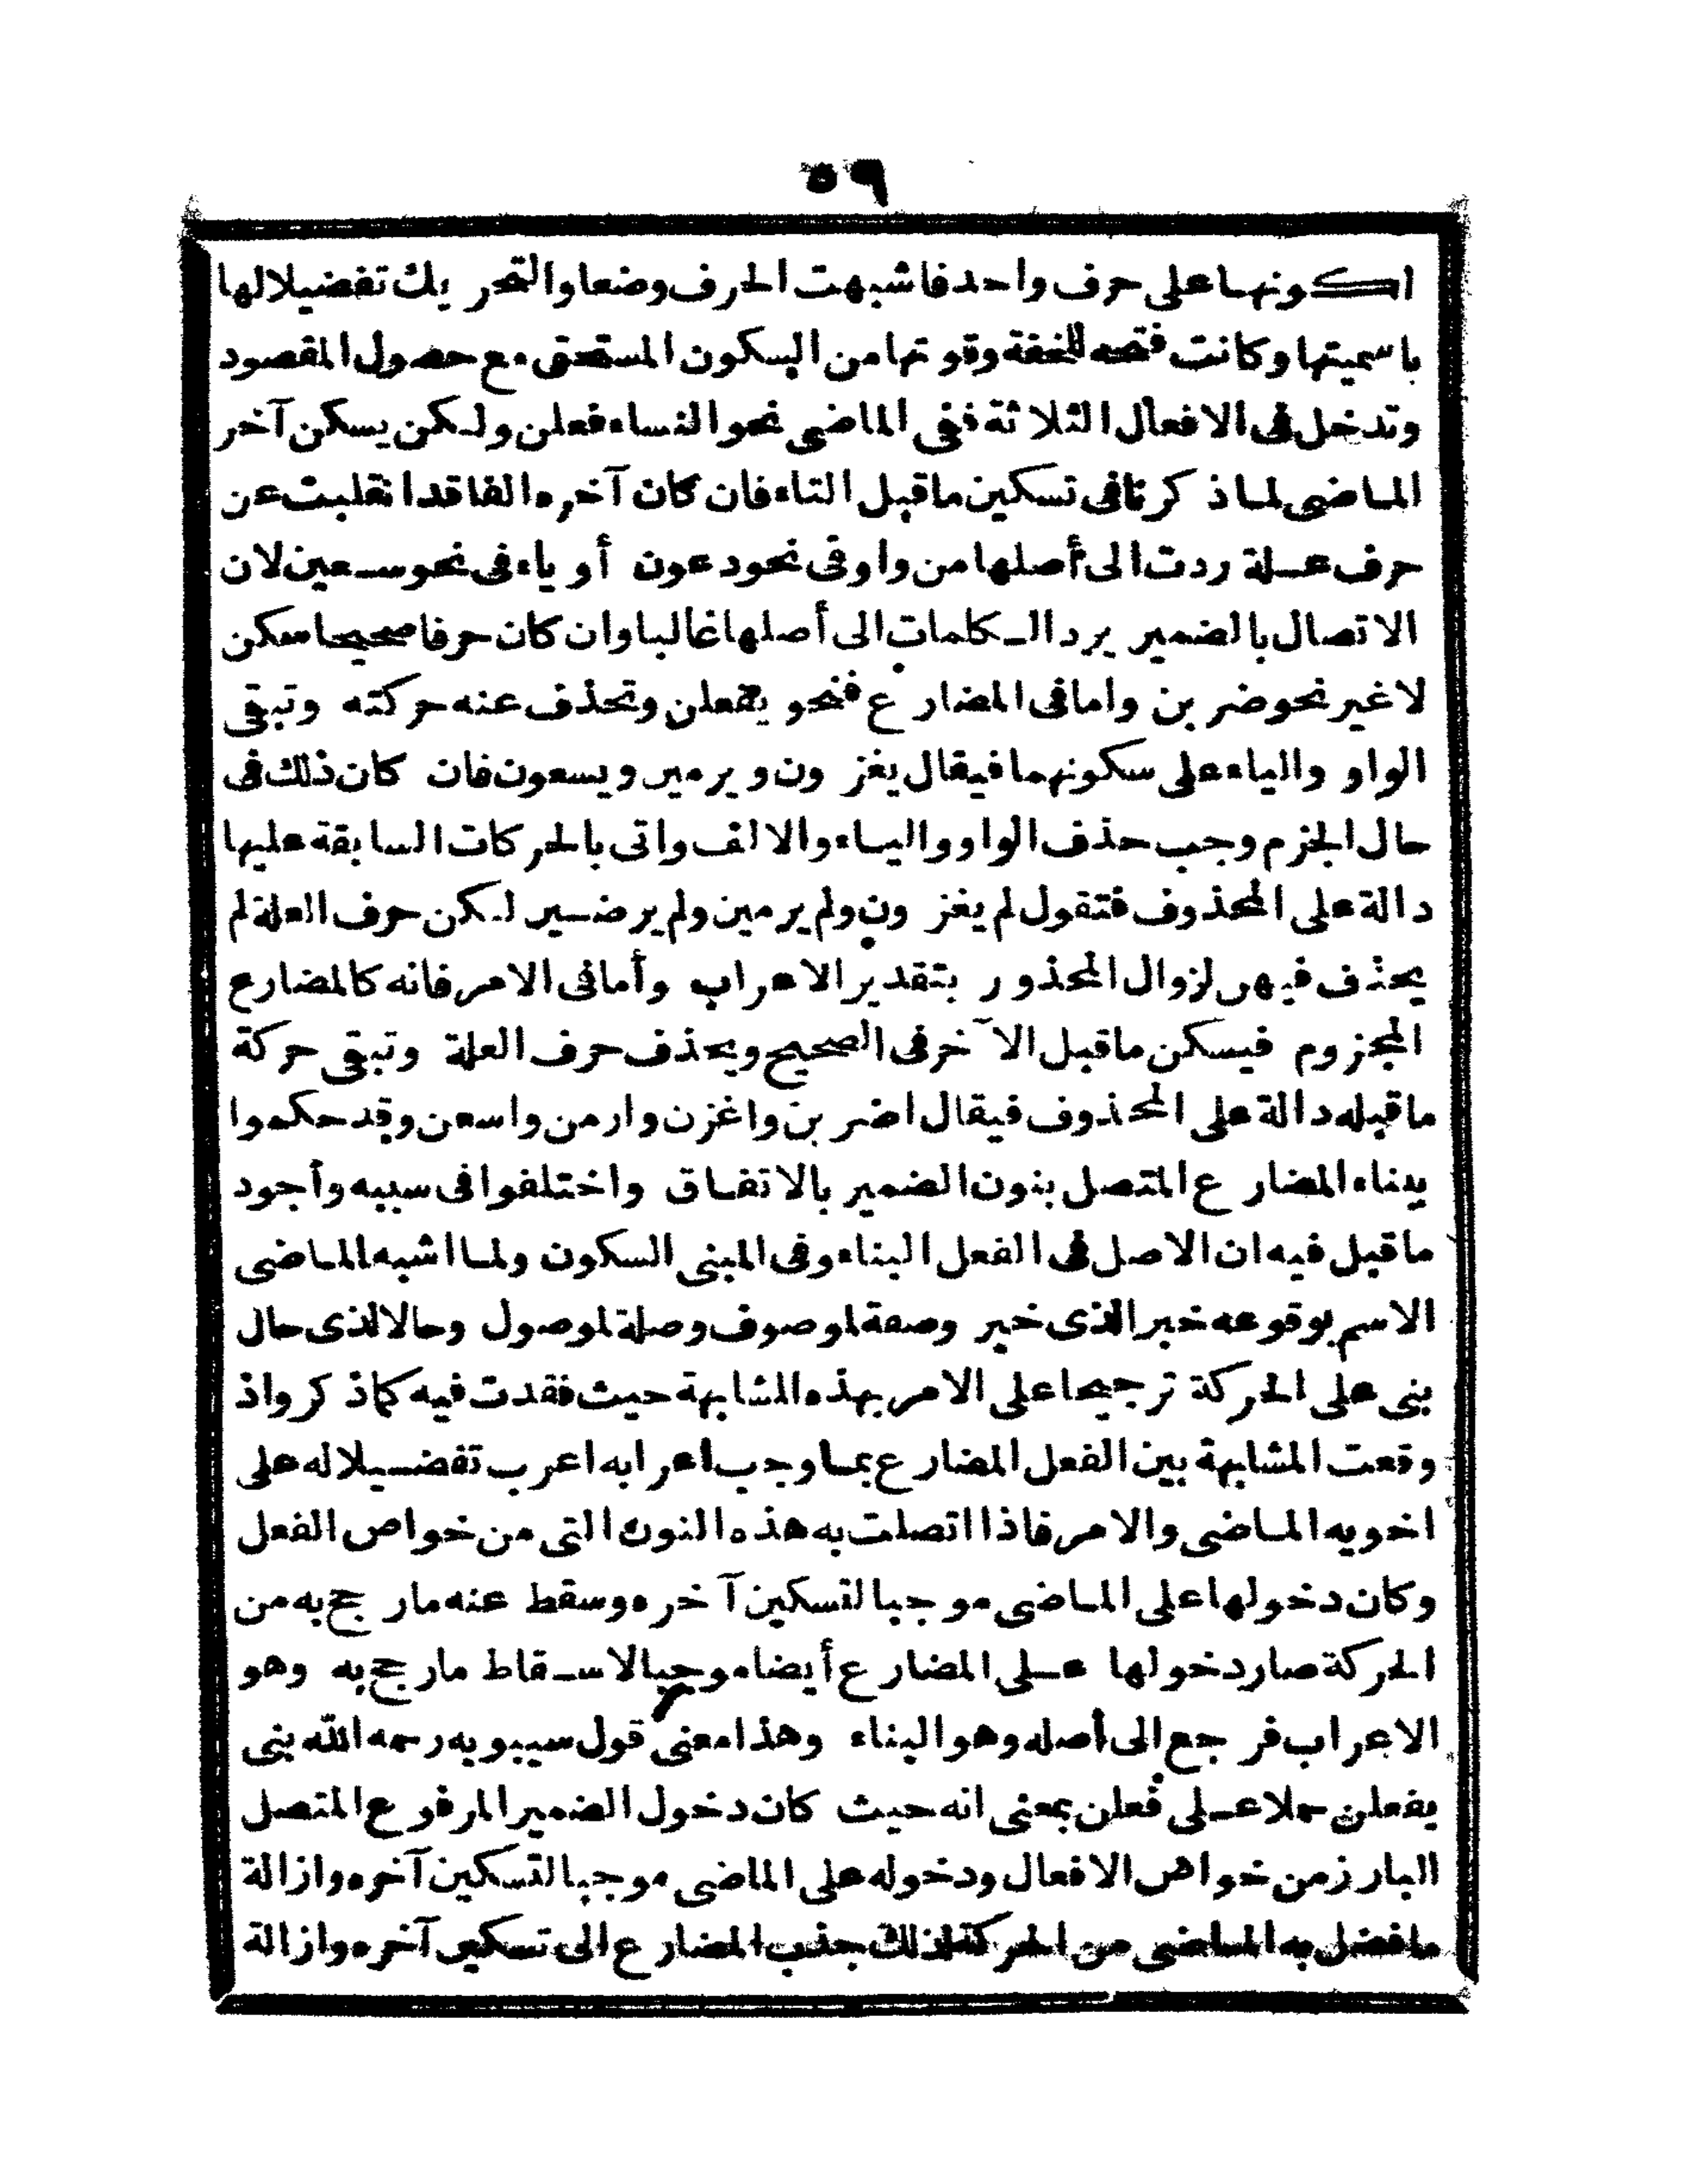 ٥٩
لكونها على حرف واحد فاشبهت الحرف وضعا والتحريك تفضيلا لها
باسميتها وكانت فتحه للخفة وقوتها من السكون المستحق مع حصول المقصود
وتدخل فى الافعال الثلاثة ففى الماضى نحو النساء فعلن ولكن يسكن آخر
الماضى لما ذكرنا فى تسكين ماقبل التاء فان كان آخره الفا قد انقلبت عن
حرف علة ردت الى أصلها من واو فى نحو دعون أو ياء فى نحو سعين لان
الاتصال بالضمير يرد الكلمات الى أصلها غالبا وان كان حرفا صحيحا سكن
لاغير نحو ضربن واما فى المضارع فنحو يفعلن وتحذف عنه حركته وتبقى
الواو والياء على سكونهما فيقال يغزون ويرمين ويسعون فان كان ذلك فى
حال الجزم وجب حذف الواو والياء والالف واتى بالحركات السابقة عليها
دالة على المحذوف فتقول لم يغزون ولم يرمين ولم يرضين لكن حرف العلة لم
يحذف فيهن لزوال المحذور بتقدير الاعراب وأما فى الامر فانه كالمضارع
المجزوم فيسكن ماقبل الآخر فى الصحيح ويحذف حرف العلة وتبقى حركة
ماقبله دالة على المحذوف فيقال اضربن واغزن وارمن واسعن وقد حكموا
ببناء المضارع المتصل بنون الضمير بالاتفاق واختلفوا فى سببه وأجود
ماقيل فيه ان الاصل فى الفعل البناء وفى المبنى السكون ولما اشبه الماضى
الاسم بوقوعه خبرا لذى خبر وصفة لموصوف وصلة لموصول وحالا لذى حال
بنى على الحركة ترجيحا على الامر بهذه المشابهة حيث فقدت فيه كما ذكر واذ
وقعت المشابهة بين الفعل المضارع بما وجب اعرابه اعرب تفضيلا له على
اخويه الماضى والامر فاذا اتصلت به هذه النون التى من خواص الفعل
وكان دخولها على الماضى موجبا لتسكين آخره وسقط عنه مارجح به من
الحركة صار دخولها على المضارع أيضا موجبا لاسقاط مارجح به وهو
الاعراب فرجع الى أصله وهو البناء وهذا معنى قول سيبويه رحمه الله بنى
يفعلن حملا على فعلن بمعنى انه حيث كان دخول الضمير المرفوع المتصل
البارز من خواص الافعال ودخوله على الماضى موجبا لتسكين آخره وازالة
مافضل به الماضى من الحركة لذلك جذب المضارع الى تسكين آخره وازالة